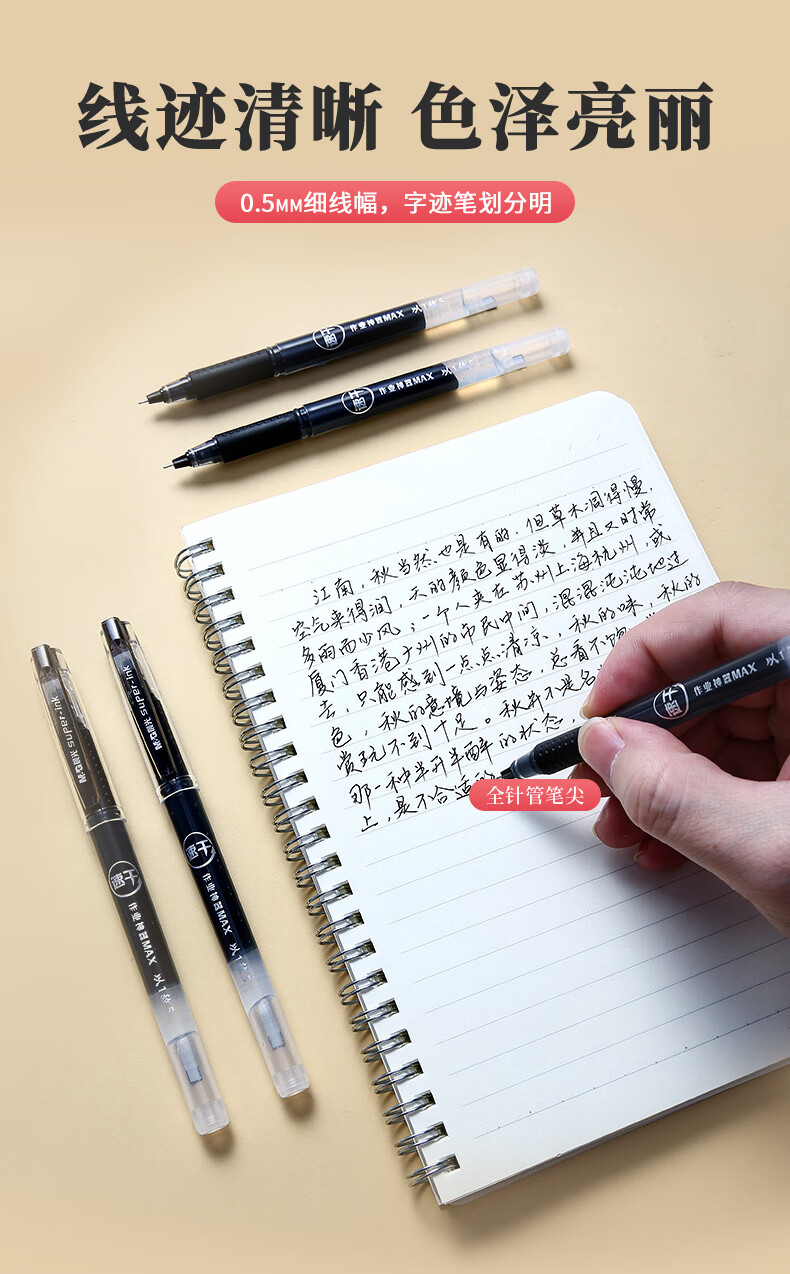 线迹清晰 色泽亮丽
0.5MM细线幅，字迹笔划分明
速干 作业神器MAX 以1
速干 作业神器MAX 以1
江南，秋当然也是有的，但草木凋得慢，
空气来得润，天的颜色显得淡，并且又时常
多雨而少风；一个人夹在苏州上海杭州，或
厦门香港广州的市民中间，混混沌沌地过
去，只能感到一点点清凉，秋的味，秋的
色，秋的意境与姿态，总看不饱
赏玩不到十足。秋并不是名
那一种半开半醉的状态，
上，是不合适的
速干 作业神器MAX 以
全针管笔尖
M&G晨光 SUPER-INK
速干 作业神器MAX 以1
M&G晨光 SUPER-INK
速干 作业神器MAX 以1